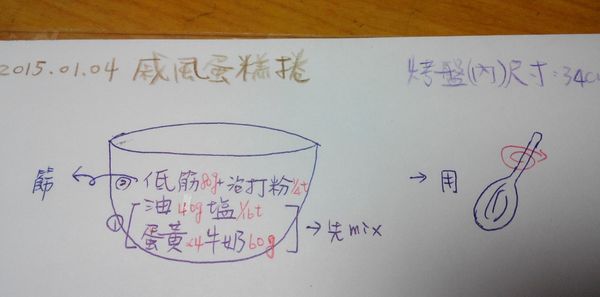 2015.01.04 戚風蛋糕捲
烤盤(內)尺寸:34c
篩 ← ② 低筋80g+泡打粉¼t
① 油40g塩⅙t
蛋黃x4牛奶60g → 先mix
→ 用